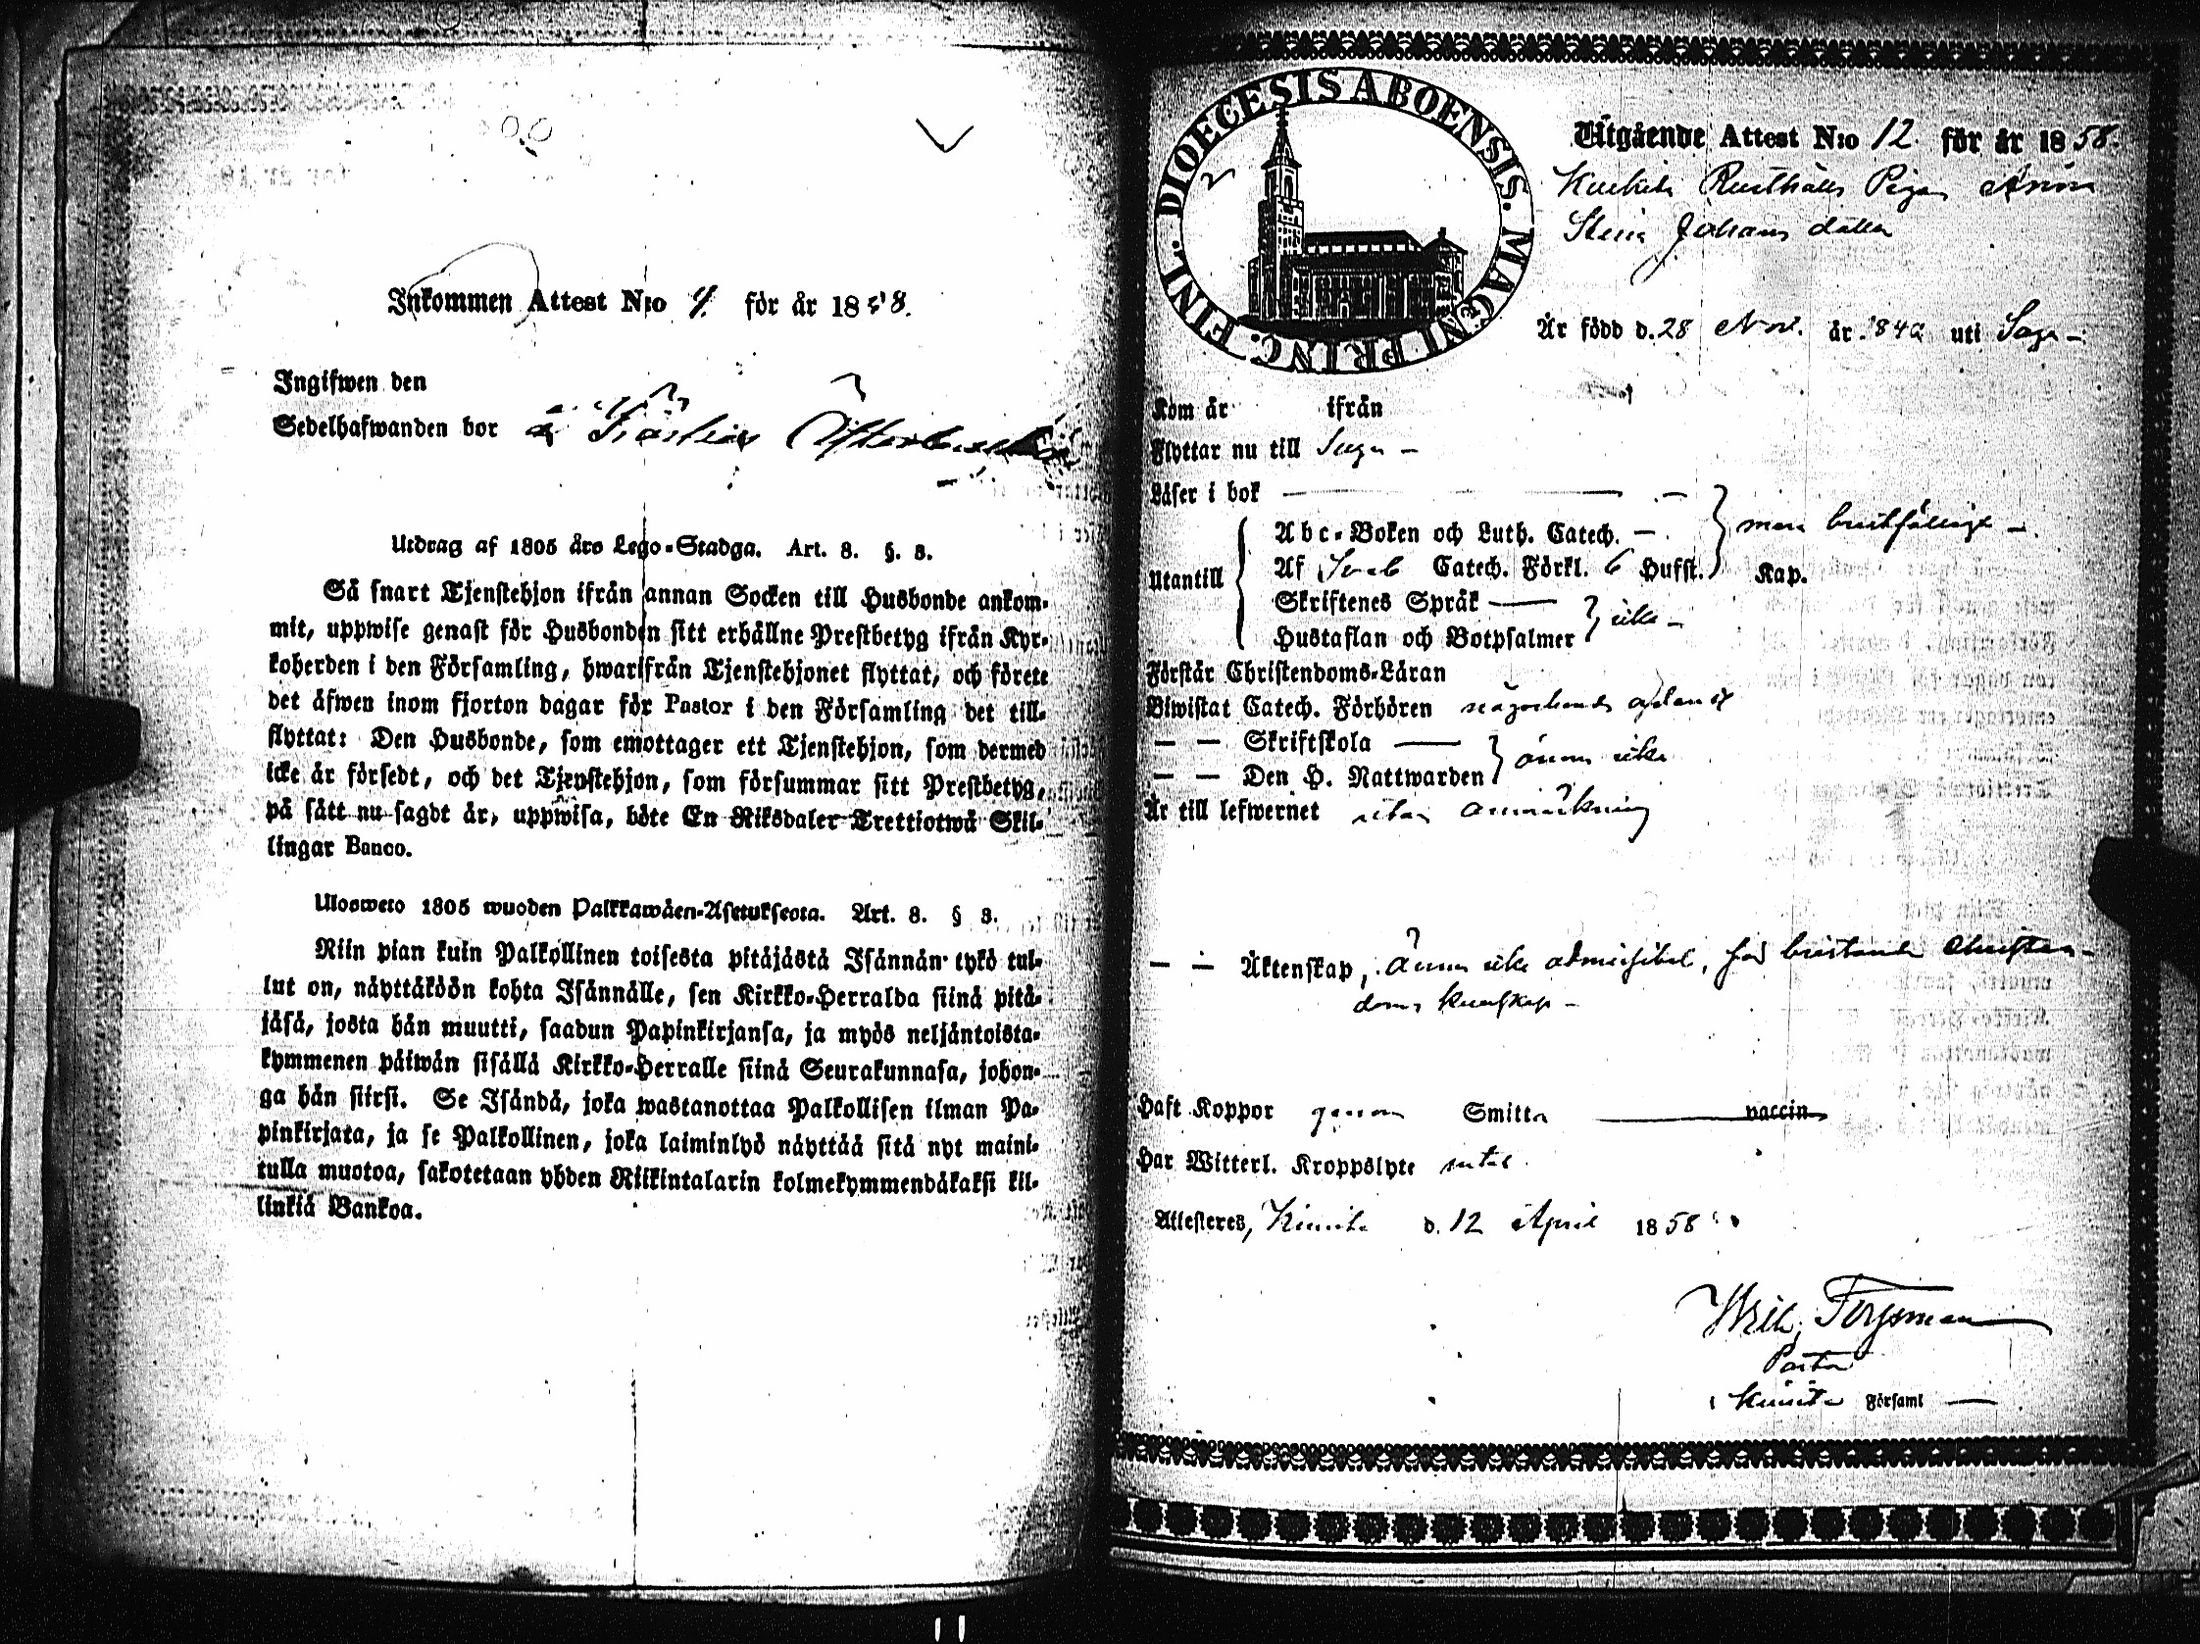 Inkommen Attest N:o 4. för år 1858.
Ingifwen den
Sedelhafwanden bor å
Utdrag af 1805 års Lego-Stadga. Art. 8. §. 8.
Så snart Tjenstehjon ifrån annan Socken till Husbonde ankom-
mit, uppwise genast för Husbonden sitt erhållne Prestbetyg ifrån Kyr-
koherden i den Församling, hwarifrån Tjenstehjonet flyttat, och förete
det äfwen inom fjorton dagar för Pastor i den Församling det till-
flyttat: Den Husbonde, som emottager ett Tjenstehjon, som dermed
icke är försedt, och det Tjenstehjon, som försummar sitt Prestbetyg,
på sätt nu sagdt är, uppwisa, böte En Riksdaler Trettiotwå Skil-
lingar Banco.
Ulosweto 1805 wuoden Palkkawäen-Asetuksesta. Art. 8. § 8.
Niin pian kuin Palkollinen toisesta pitäjästä Isännän tykö tul-
lut on, näyttäköön kohta Isännälle, sen Kirkko-Herralda siinä pitä-
jäsä, josta hän muutti, saadun Papinkirjansa, ja myös neljäntoista-
kymmenen päiwän sisällä Kirkko-Herralle siinä Seurakunnasa, johon-
ga hän siirsi. Se Isändä, joka wastanottaa Palkollisen ilman Pa-
pinkirjata, ja se Palkollinen, joka laiminlyö näyttää sitä nyt maini-
tulla muotoa, sakotetaan yhden Riikintalarin kolmekymmendäkaksi kil-
linkiä Bankoa.
DIOECESIS ABOENSIS. MAGNI PRINC. FINL.
Utgående Attest N:o 12 för år 1858.
Rusthålls Pigan Anna
Stina Johans dotter
Är född d. 28 Nov. år 1840 uti Sagu -
Kom år ifrån
Flyttar nu till Sagu -
Läser i bok
Abc-Boken och Luth. Catech. - men bristfälligt -
Utantill Af Sveb Catech. Förkl. 6 Hufst. Kap.
Skriftenes Språk
Hustaflan och Botpsalmer icke -
Förstår Christendoms-Läran
Biwistat Catech. Förhören någorlunda
— — Skriftskola
— — Den H. Nattwarden ännu icke
Är till lefwernet utan anmärkning
— — Äktenskap, ännu icke admissibel, för bristande Christen-
doms kunskap -
Haft Koppor genom Smitta vaccin
Har Witterl. Kroppslyte intet
Attesteres, Kimito d. 12 April 1858
Forssman
Pastor
i Kimito Församl